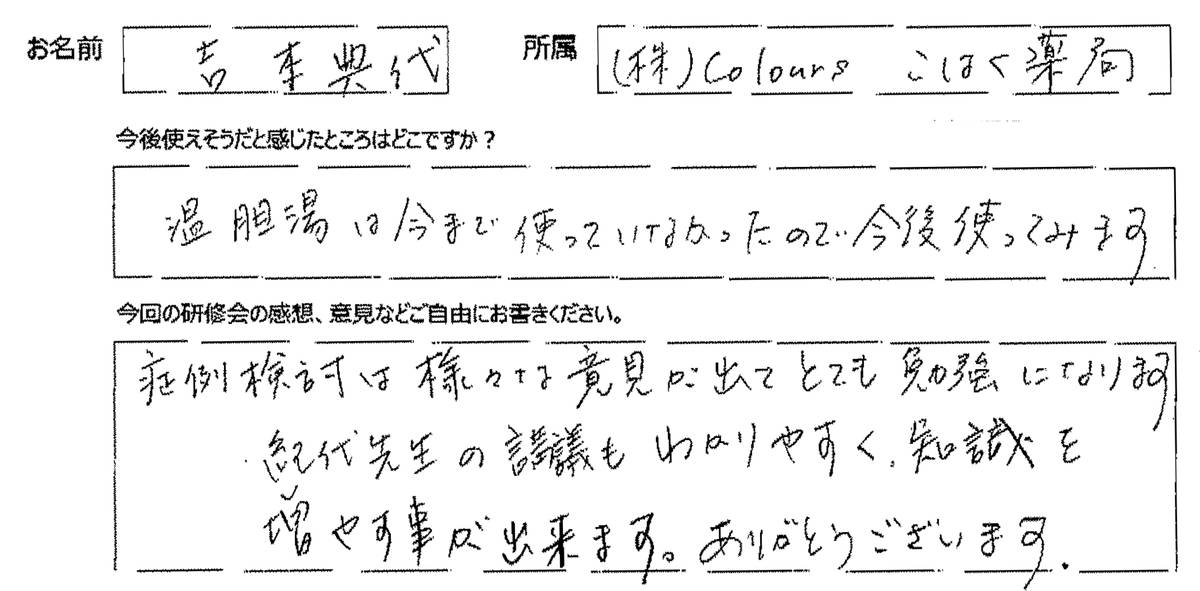 お名前 吉本典代 所属 (株)Colours こはく薬局
今後使えそうだと感じたところはどこですか？
温胆湯は今まで使っていなかったので今後使ってみます
今回の研修会の感想、意見などご自由にお書きください。
症例検討は様々な意見が出てとても勉強になります
紀代先生の講議もわかりやすく、知識を
増やす事が出来ます。ありがとうございます.